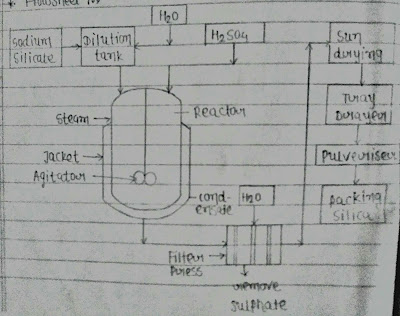 * Flowsheet
H2O
Sodium
Silicate
Dilution
tank
H2SO4
Sun
drying
Steam
Reactor
Tray
Durayeur
Jacket
Pulveuriser
Agitator
cond-
ensate
H2O
Packing
Silica
Filter
Press
remove
sulphate